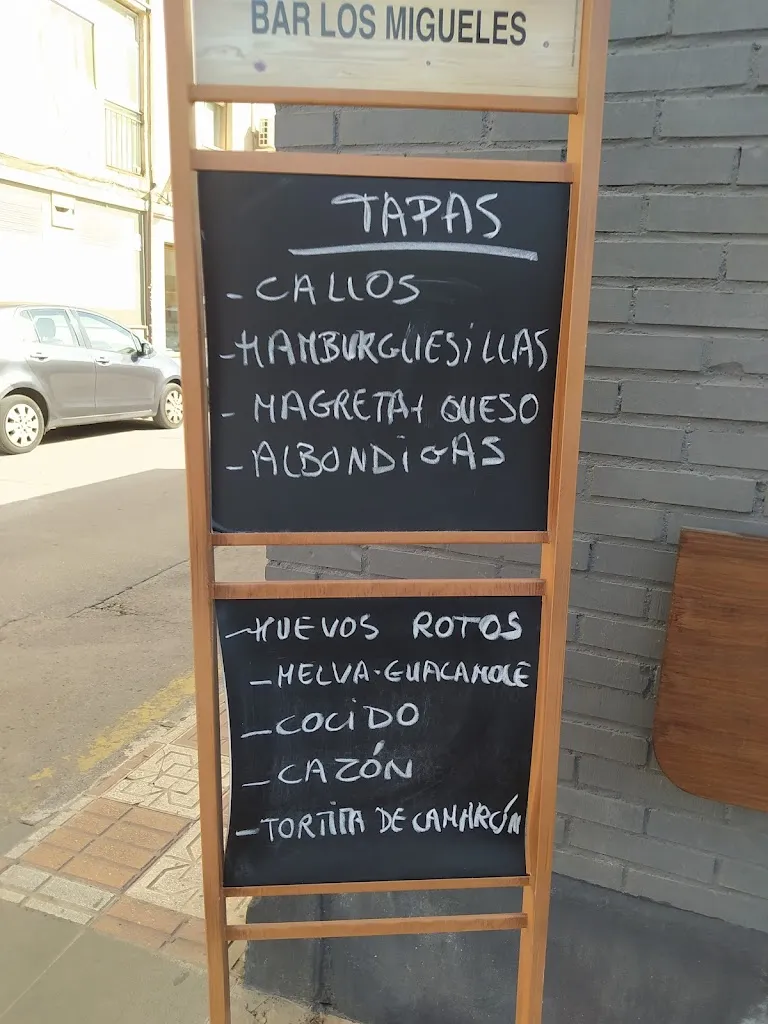 BAR LOS MIGUELES
TAPAS
- CALLOS
- HAMBURGUESILLAS
- MAGRETA+ QUESO
- ALBONDIGAS
- HUEVOS ROTOS
- MELVA-GUACAMOLE
- COCIDO
- CAZÓN
- TORTITA DE CAMARÓN